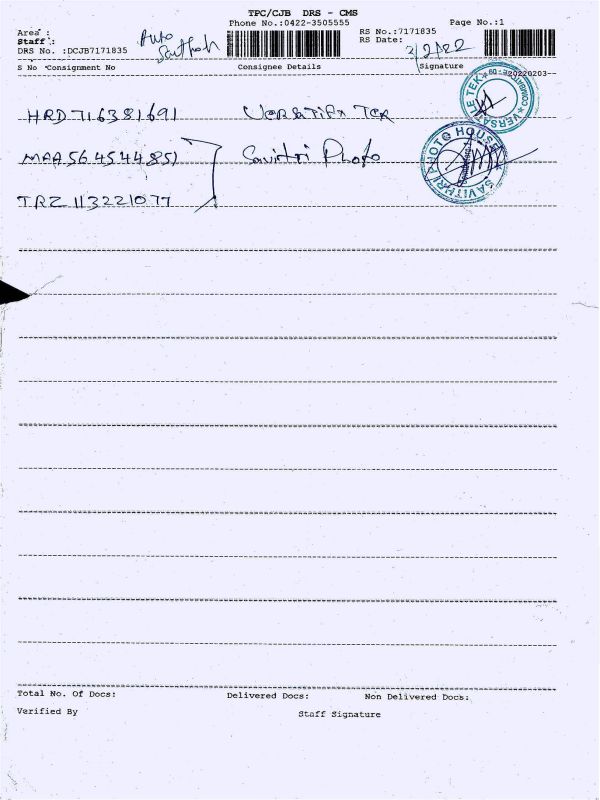 TPC/CJB DRS - CMS
Phone No.:0422-3505555 Page No.:1
Area :
Staff : Auto Santhosh
DRS No. :DCJB7171835
RS No.:7171835
RS Date: 3/2/22
S No Consignment No Consignee Details Signature 20220203-
HRD716381691
MAA564544851 Savithri Photo
TRZ 113221077
VERSATILE TEK
SAVITHRI PHOTO HOUSE
Total No. Of Docs: Delivered Docs: Non Delivered Docs:
Verified By Staff Signature